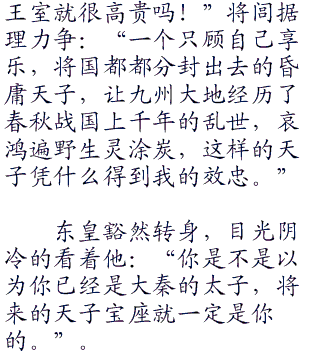 王室就很高贵吗！”将闾据
理力争：“一个只顾自己享
乐，将国都都分封出去的昏
庸天子，让九州大地经历了
春秋战国上千年的乱世，哀
鸿遍野生灵涂炭，这样的天
子凭什么得到我的效忠。”
东皇豁然转身，目光阴
冷的看着他：“你是不是以
为你已经是大秦的太子，将
来的天子宝座就一定是你
的。”。